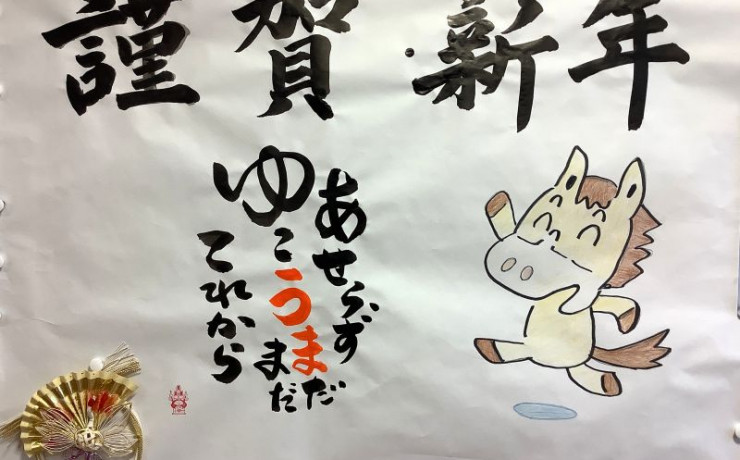 謹賀新年
あせらず
ゆこうまだまだ
これから